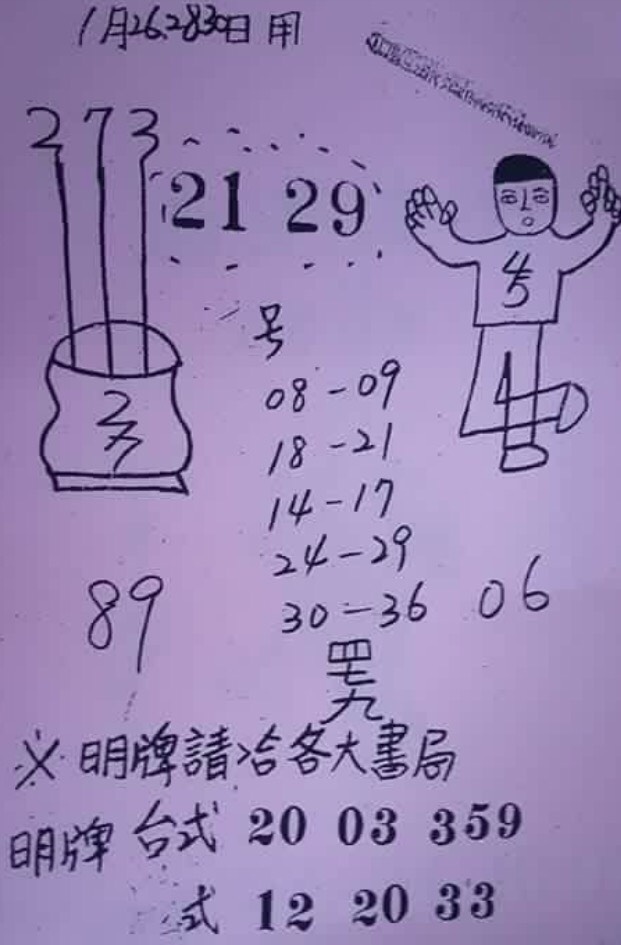 1月26.28.30日用
2 7 3
21 29
4
5
号
08-09
18-21
2
7
14-17
24-29
30-36
06
89
四
七
九
※明牌請洽各大書局
明牌 台式 20 03 359
式 12 20 33